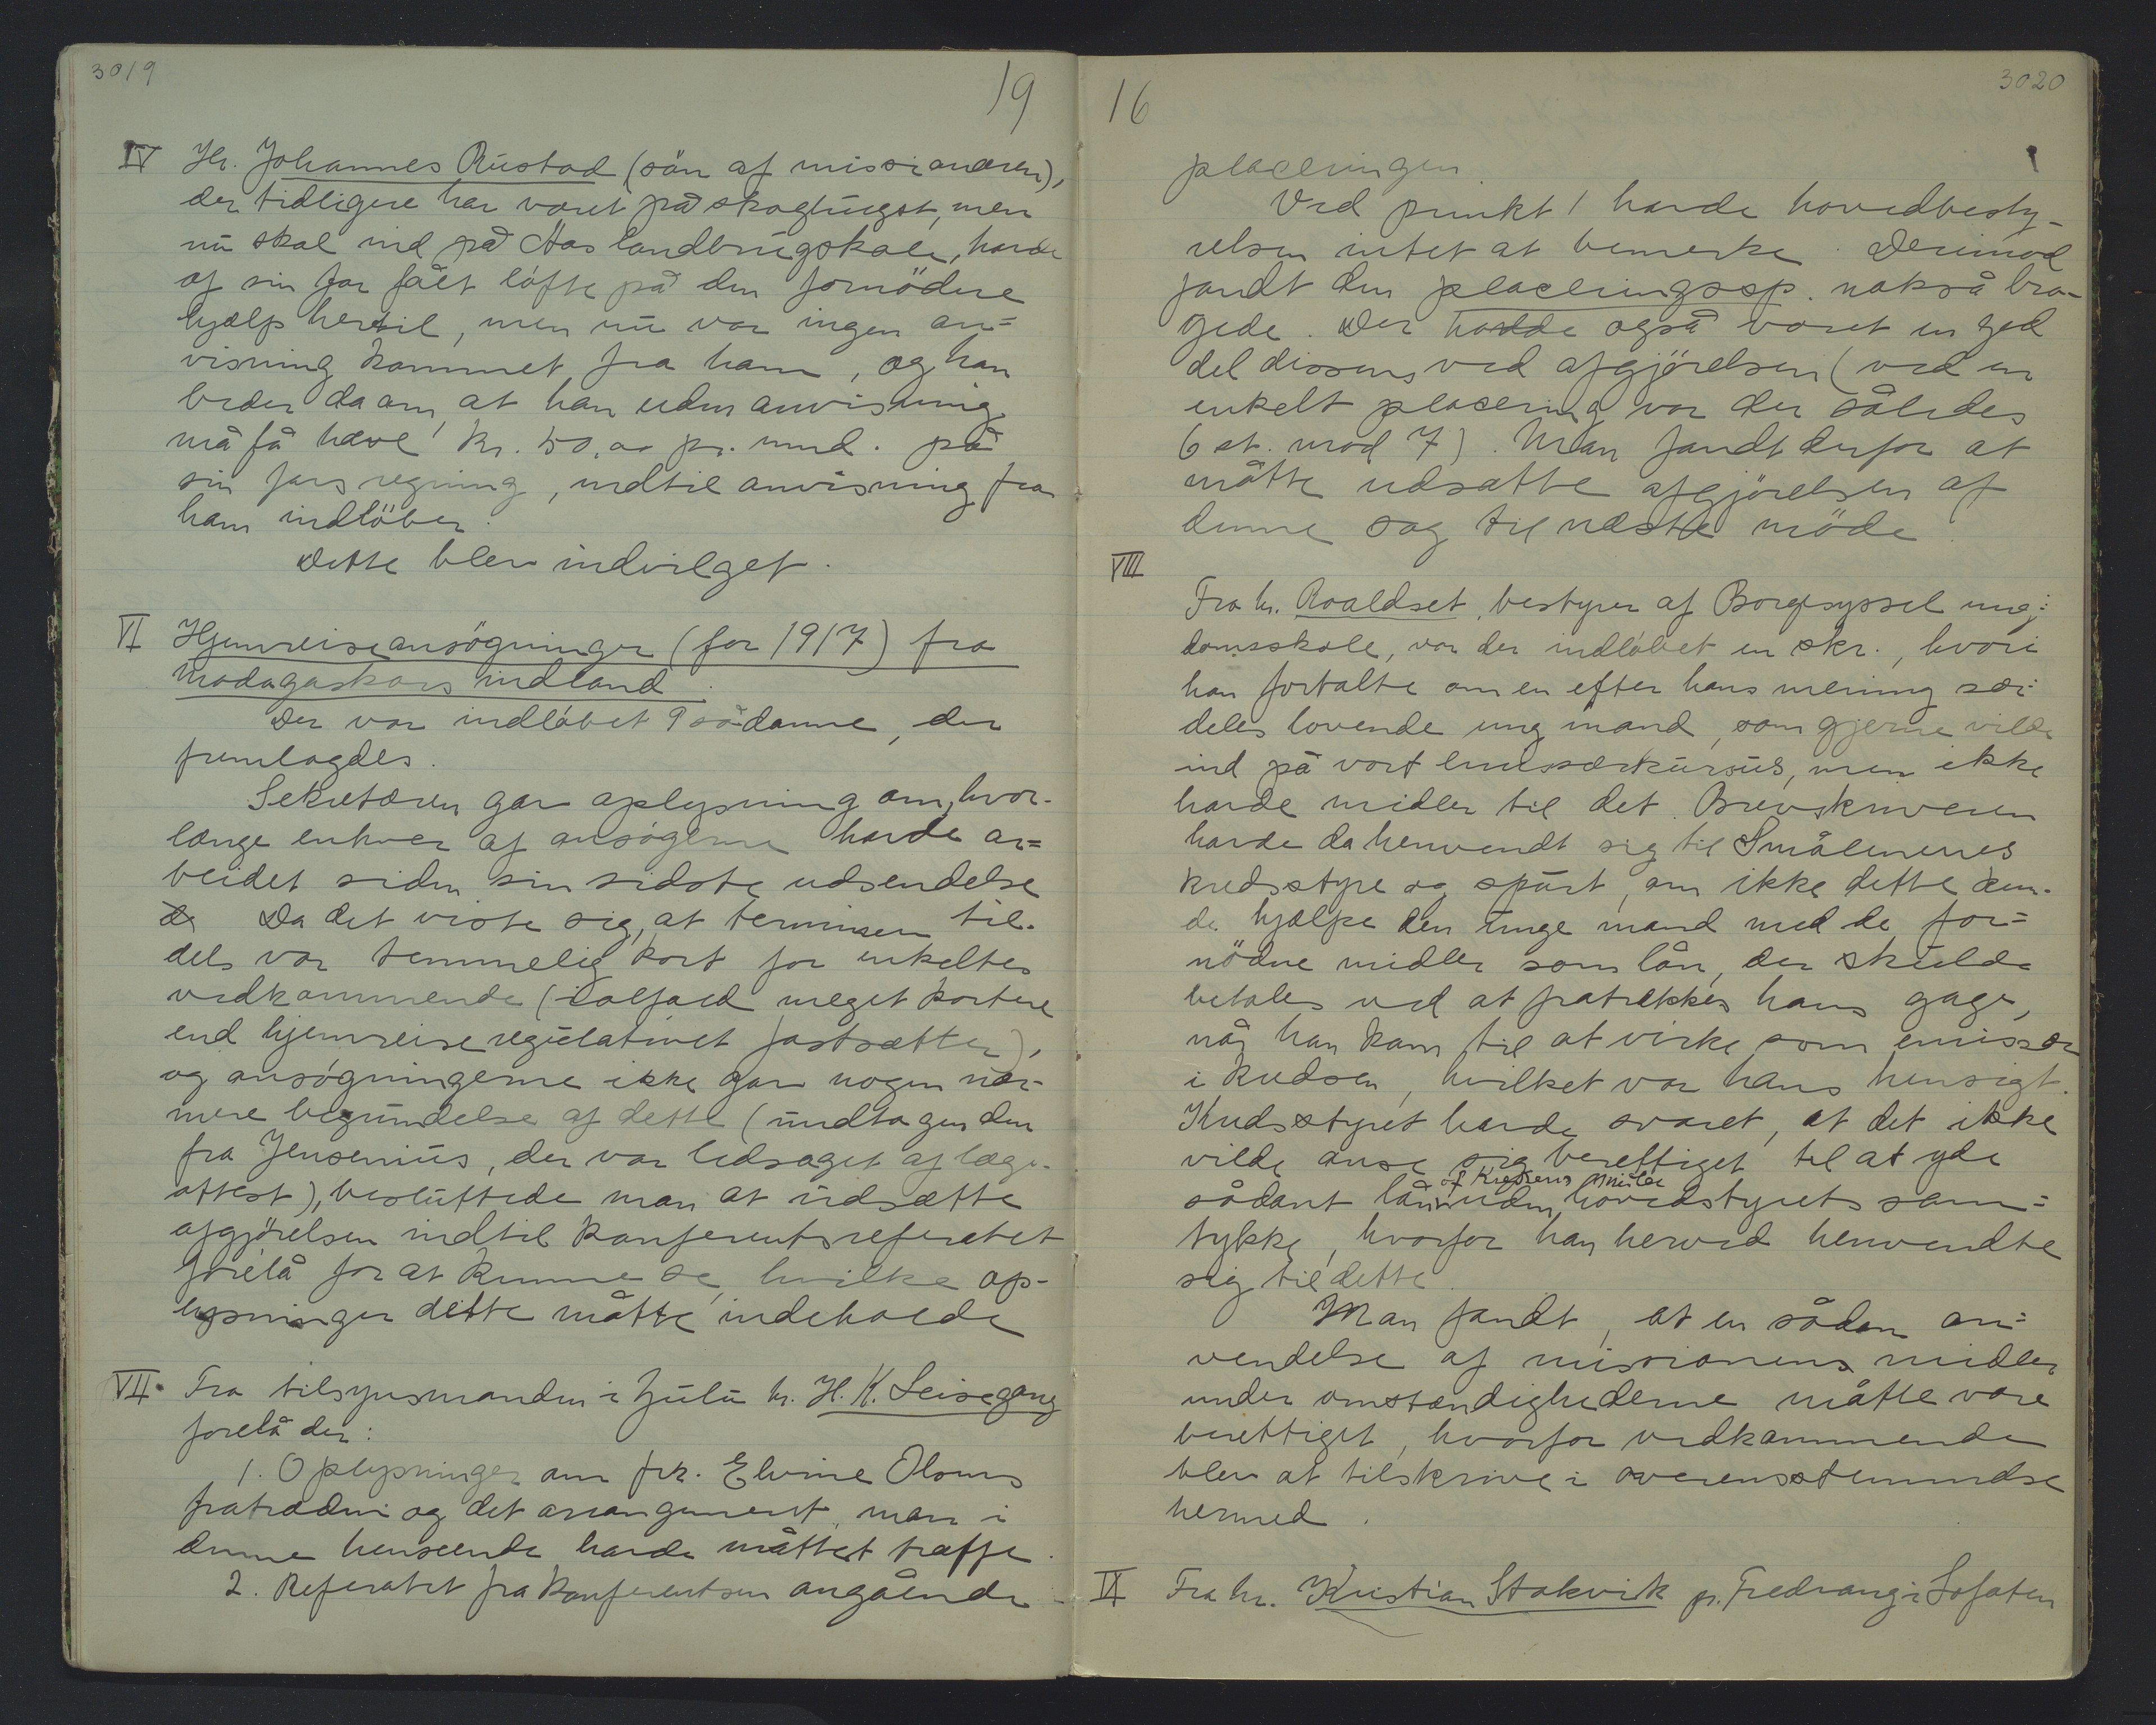 3019
19
IV Hr. Johannes Rustad (sön af missionæren),
der tidligere har været på skoghugst, men
nu skal ind på Aas landbrugskole, havde
af sin far fået löfte på den fornödne
hjælp hertil, men nu var ingen an=
visning kommet fra ham, og han
beder da om, at han uden anvisning
må få hæve kr. 50,00 pr. mnd. på
sin fars regning, indtil anvisning fra
ham indlöber.
Dette blev indvilget.
VI Hjemreiseansögninger (for 1917) fra
Madagaskars indland.
Der var indløbet 9 sådanne, der
fremlagdes.
Sekretæren gav oplysning om, hvor-
længe enhver af ansøgerne havde ar=
beidet siden sin sidste udsendelse
Da det viste sig, at terminen til-
dels var temmelig kort for enkeltes
vedkommende (ialfald meget kortere
end hjemreiseregulativet fastsætter),
og ansögningerne ikke gav nogen nær-
mere begrundelse af dette (undtagen den
fra Jensenius, der var ledsaget af læge-
attest), besluttede man at udsætte
afgjörelsen indtil konferentsreferatet
forelå for at kunne se, hvilke op-
lysninger dette måtte indeholde
VII. Fra tilsynsmanden i Zulu hr. H. K. Leisegang
forelå der:
1. Oplysninger om frk. Elvine Oloms
fratræden og det arrangement, man i
denne henseende havde måttet træffe.
2. Referatet fra konferentsen angående
16
3020
placeringen
Ved punkt 1 havde hovedbesty-
relsen intet at bemerke. Derimod
fandt den placeringssp. nokså bro-
gede. Der hadde også været en hel
del dissens ved afgjörelsen (ved en
enkelt placering var der således
6 st. mod 7). Man fandt derfor at
måtte udsætte afgjörelsen af
denne sag til næste möde.
VIII
Fra hr. Roaldset, bestyrer af Borgesyssel ung=
domsskole, var der indløbet en skr., hvori
han fortalte om en efter hans mening sær-
deles lovende ung mand, som gjerne vilde
ind på vort emissærkursus, men ikke
havde midler til det. Brevskriveren
havde da henvendt sig til Smålenenes
kredsstyre og spurt, om ikke dette kun-
de hjælpe den unge mand med de for=
nödne midler som lån, der skulde
betales ved at fratrækkes hans gage,
når han kom til at virke som emissær
i kredsen, hvilket var hans hensigt.
Kredsstyret havde svaret, at det ikke
vilde anse sig berettiget til at yde
af Kredsens midler
sådant lån uden hovedstyrets sam=
tykke, hvorfor han herved henvendte
sig til dette.
Man fandt, at en sådan an=
vendelse af missionens midler
under omstændighederne måtte være
berettiget, hvorfor vedkommende
blev at tilskrive i overensstemmelse
hermed.
IX Fra hr. Kristian Stokvik pr. Fredvang i Lofoten